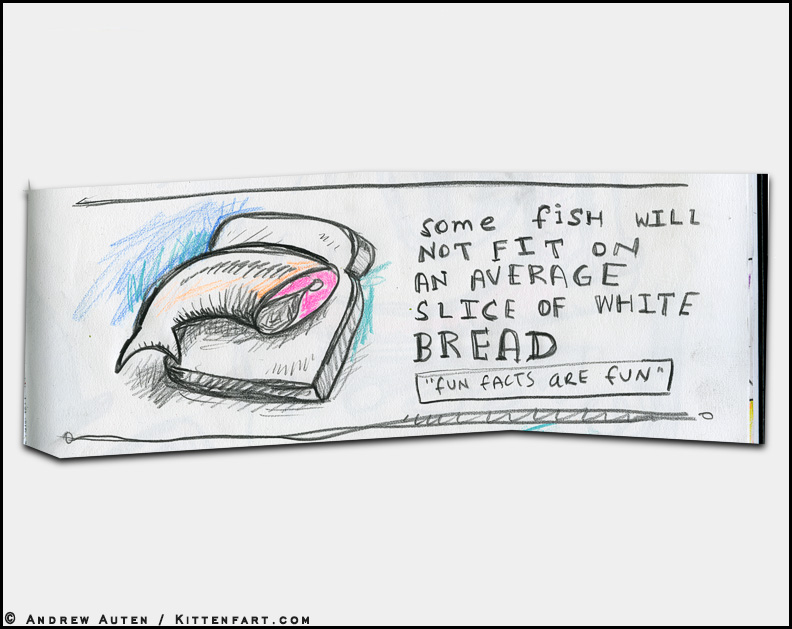 some fish WILL
NOT FIT ON
AN AVERAGE
SLICE OF WHITE
BREAD
"FUN FACTS ARE FUN"
© ANDREW AUTEN / KITTENFART.COM